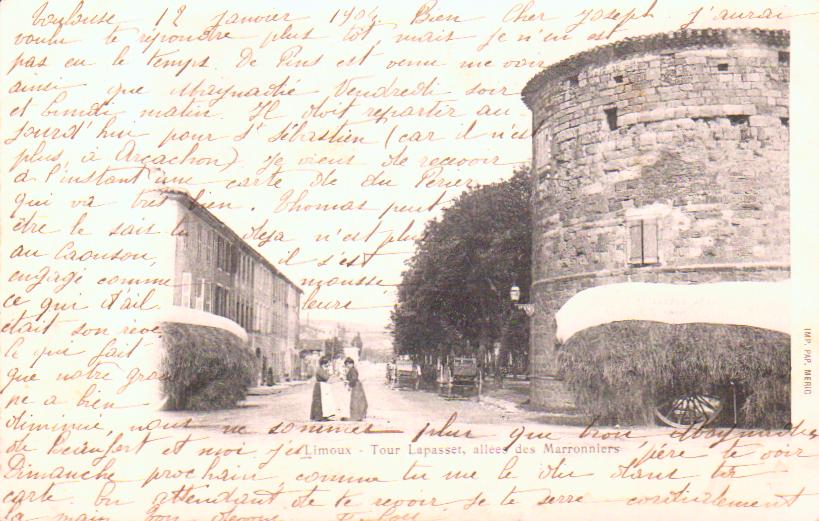 Toulouse 12 janvier 1904. Bien cher Joseph j'aurai
voulu te répondre plus tôt mais je n'en est
pas eu le temps. De Pins est venu me voir
ainsi que Maynadié Vendredi soir
et lundi matin. Il doit repartir au
jourd'hui pour St Sébastien (car il n'est
plus à Arcachon). Je viens de recevoir
à l'instant une carte de du Périer
qui va très bien. Thomas peut
être le sais tu déja n'est plus
au Caousou, il s'est
engagé comme mousse
ce qui d'ail leurs
était son reve
le qui fait
que notre grou
pe a bien
diminué, nous ne sommes plus que trou Maynadié
de Beaufort et moi. J'espère te voir
Limoux - Tour Lapasset, allées des Marronniers
Dimanche prochain comme tu me le dis dans ta
carte. En attendant de te revoir je te serre cordialement
la main ton
IMP. PAP. MERIC